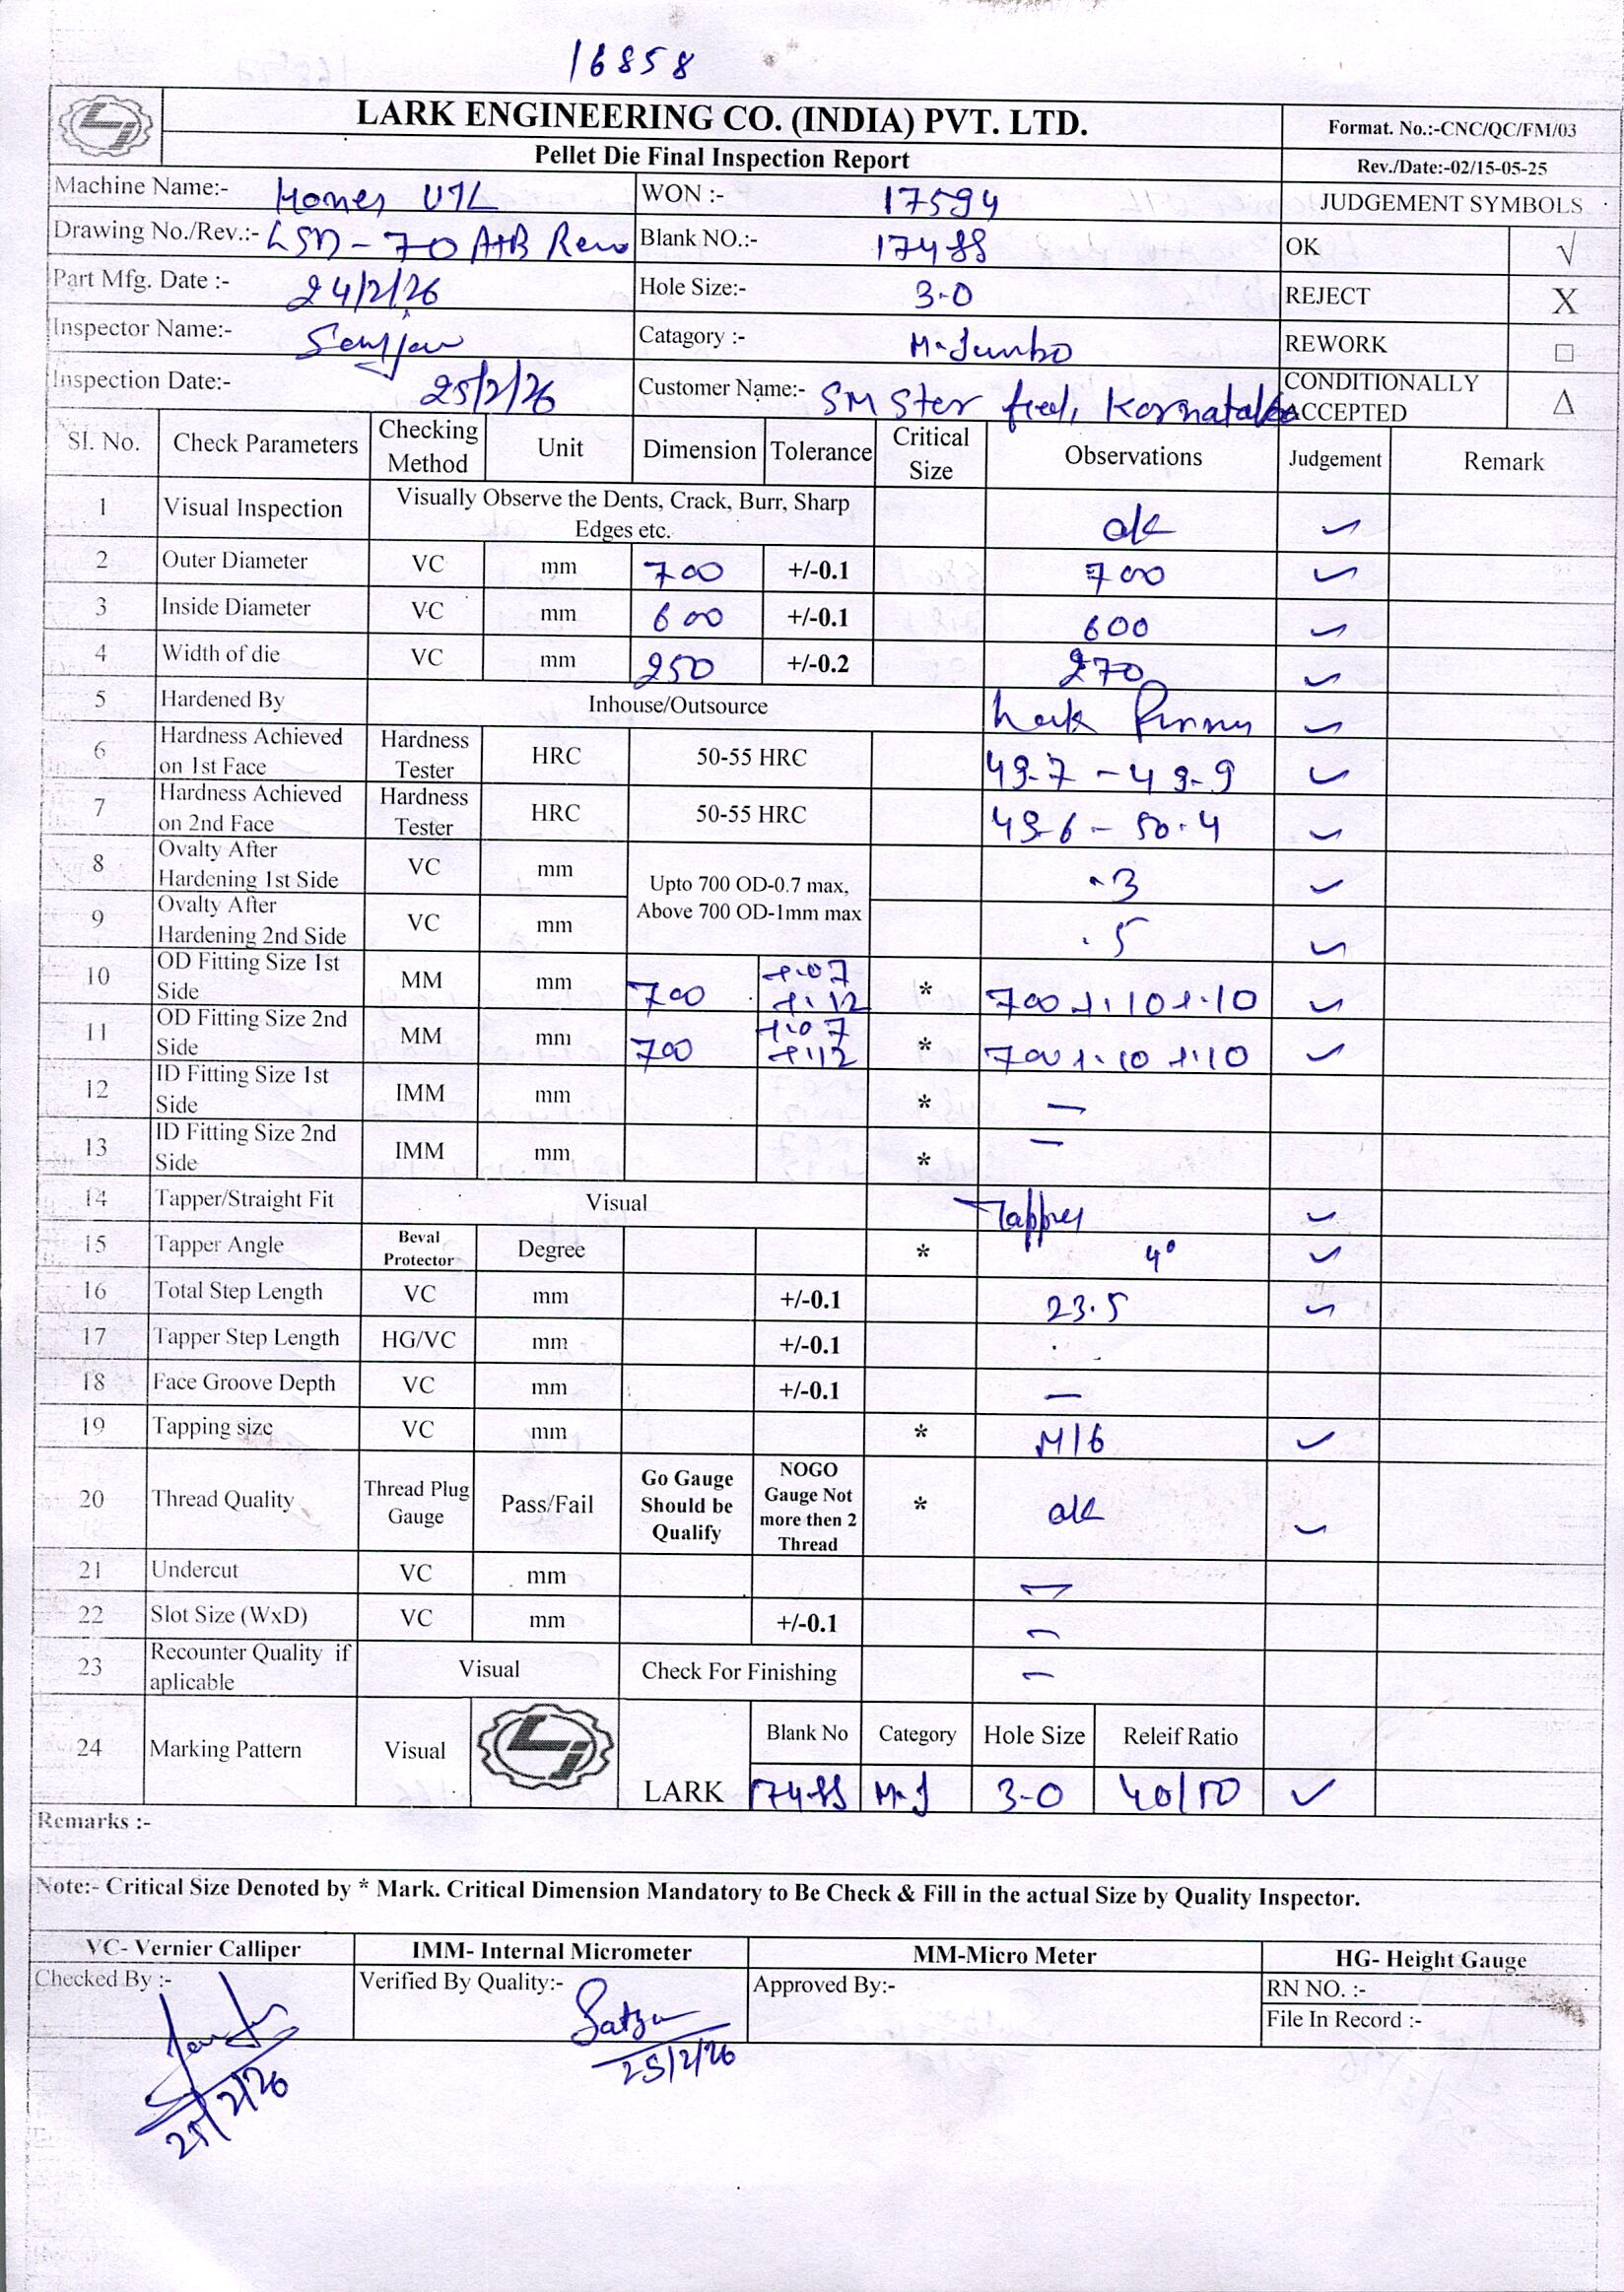 16858
LARK ENGINEERING CO. (INDIA) PVT. LTD.
Format. No.:-CNC/QC/FM/03
Pellet Die Final Inspection Report
Rev./Date:-02/15-05-25
Machine Name:- UTL WON :- 17594 JUDGEMENT SYMBOLS
Drawing No./Rev.:- LSD-70 A+B Rev0 Blank NO.:- 17488 OK √
Part Mfg. Date :- 24/2/26 Hole Size:- 3.0 REJECT X
Inspector Name:- Catagory :- M-Jumbo REWORK □
Inspection Date:- 25/2/26 Customer Name:- SM Star feed, Karnataka CONDITIONALLY ACCEPTED Δ
Sl. No. Check Parameters Checking Method Unit Dimension Tolerance Critical Size Observations Judgement Remark
1 Visual Inspection Visually Observe the Dents, Crack, Burr, Sharp Edges etc. ok ✓
2 Outer Diameter VC mm 700 +/-0.1 700 ✓
3 Inside Diameter VC mm 600 +/-0.1 600 ✓
4 Width of die VC mm 250 +/-0.2 270 ✓
5 Hardened By Inhouse/Outsource Lark ✓
6 Hardness Achieved on 1st Face Hardness Tester HRC 50-55 HRC 49.7 - 49.9 ✓
7 Hardness Achieved on 2nd Face Hardness Tester HRC 50-55 HRC 49.6 - 50.4 ✓
8 Ovalty After Hardening 1st Side VC mm Upto 700 OD-0.7 max, Above 700 OD-1mm max .3 ✓
9 Ovalty After Hardening 2nd Side VC mm .5 ✓
10 OD Fitting Size 1st Side MM mm 700 +.07 +.12 * 700 +.10 +.10 ✓
11 OD Fitting Size 2nd Side MM mm 700 +.07 +.12 * 700 +.10 +.10 ✓
12 ID Fitting Size 1st Side IMM mm * —
13 ID Fitting Size 2nd Side IMM mm * —
14 Tapper/Straight Fit Visual Tapper ✓
15 Tapper Angle Beval Protector Degree * 4° ✓
16 Total Step Length VC mm +/-0.1 23.5 ✓
17 Tapper Step Length HG/VC mm +/-0.1
18 Face Groove Depth VC mm +/-0.1 —
19 Tapping size VC mm * M16 ✓
20 Thread Quality Thread Plug Gauge Pass/Fail Go Gauge Should be Qualify NOGO Gauge Not more then 2 Thread * ok ✓
21 Undercut VC mm —
22 Slot Size (WxD) VC mm +/-0.1 —
23 Recounter Quality if aplicable Visual Check For Finishing —
24 Marking Pattern Visual LARK Blank No Category Hole Size Releif Ratio
17488 M.J 3.0 40/50 ✓
Remarks :-
Note:- Critical Size Denoted by * Mark. Critical Dimension Mandatory to Be Check & Fill in the actual Size by Quality Inspector.
VC- Vernier Calliper IMM- Internal Micrometer MM-Micro Meter HG- Height Gauge
Checked By :- Verified By Quality:- Approved By:- RN NO. :-
File In Record :-
25/2/26
25/2/26